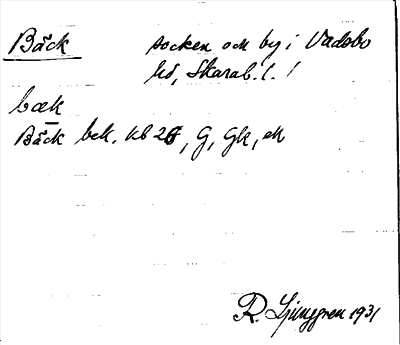 Bäck socken och by i Vadsbo
hd, Skarab. l. !
bæk
Bäck bek. KB 26, G, Gk, ek
R. Ljunggren 1931